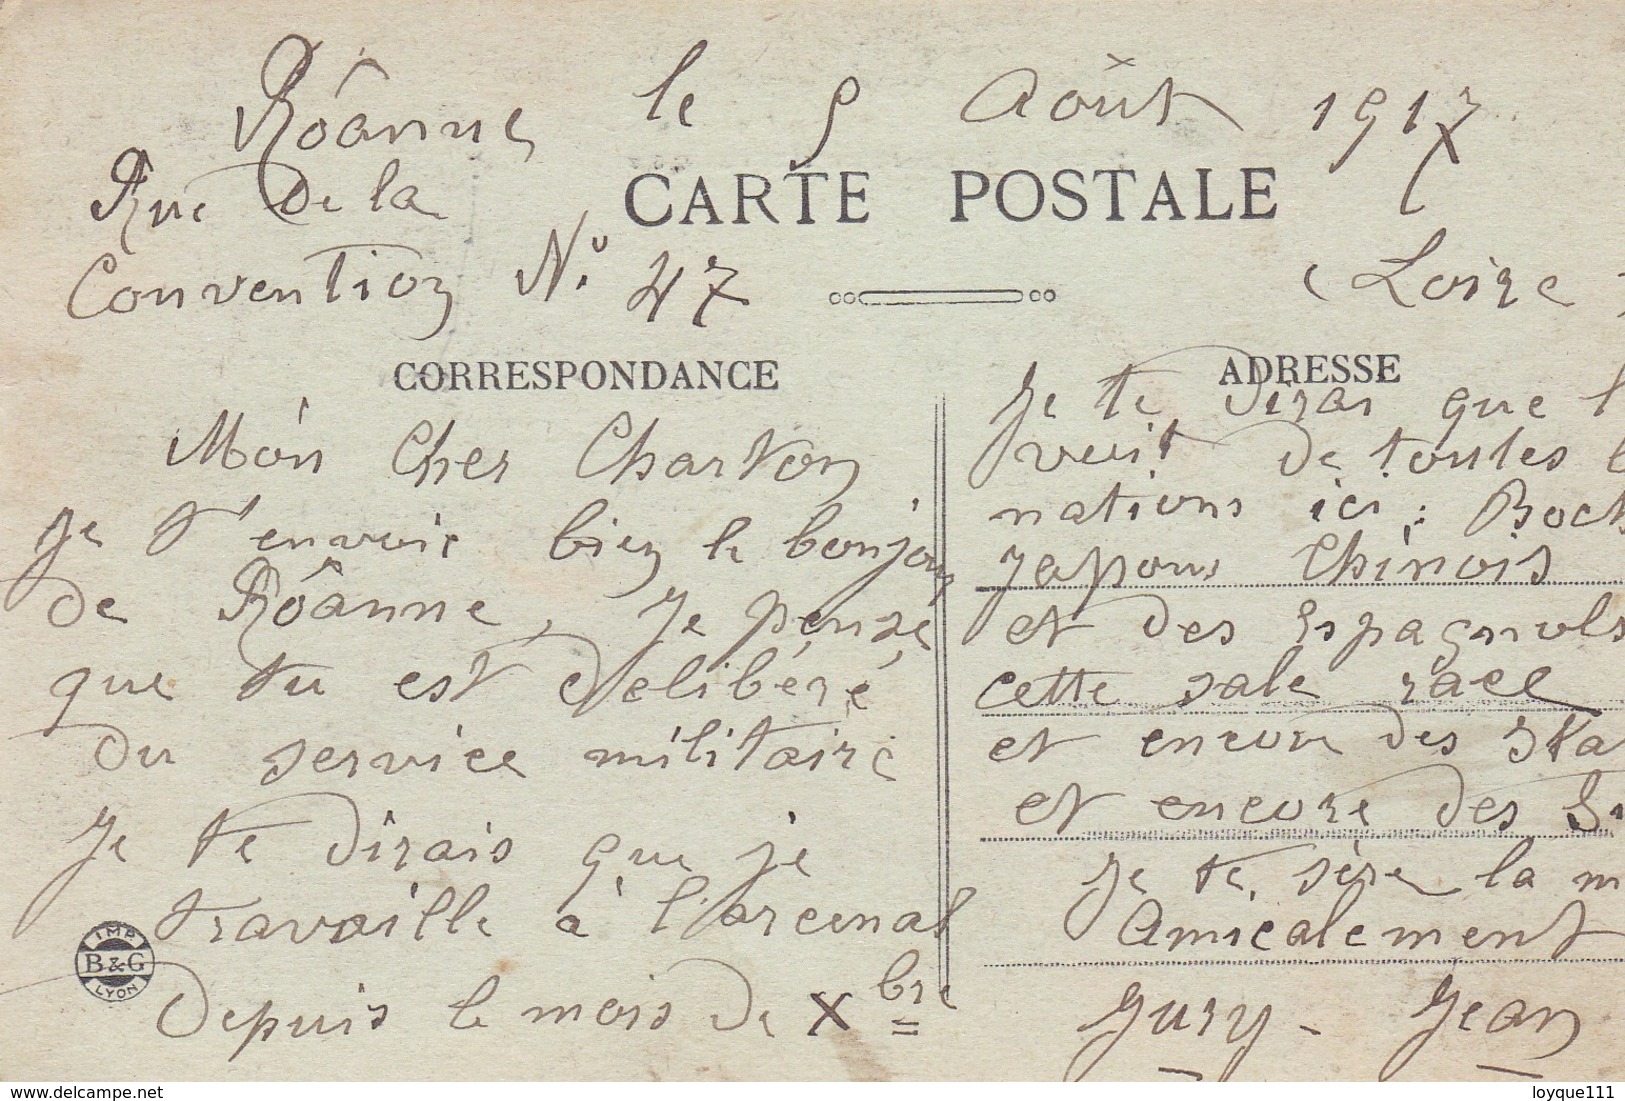 Rôanne le 9 Août 1917
CARTE POSTALE
Rue De la
Convention No 47
( Loire )
CORRESPONDANCE
Mon Cher Charton
je t'envoie bien le bonjour
de Rôanne, Je pense
que tu est délibéré
du service militaire
Je te dirais que je
travaille à l'arcenal
depuis le mois de Xbre
IMP. B&G LYON
ADRESSE
Je te dirai que l
voit de toutes l
nations ici : Boch
Japons Chinois
et des Espagnols
cette sale race
et encore des Ita
et encore des
Je te sère la m
Amicalement
Jury - Jean
loyque111